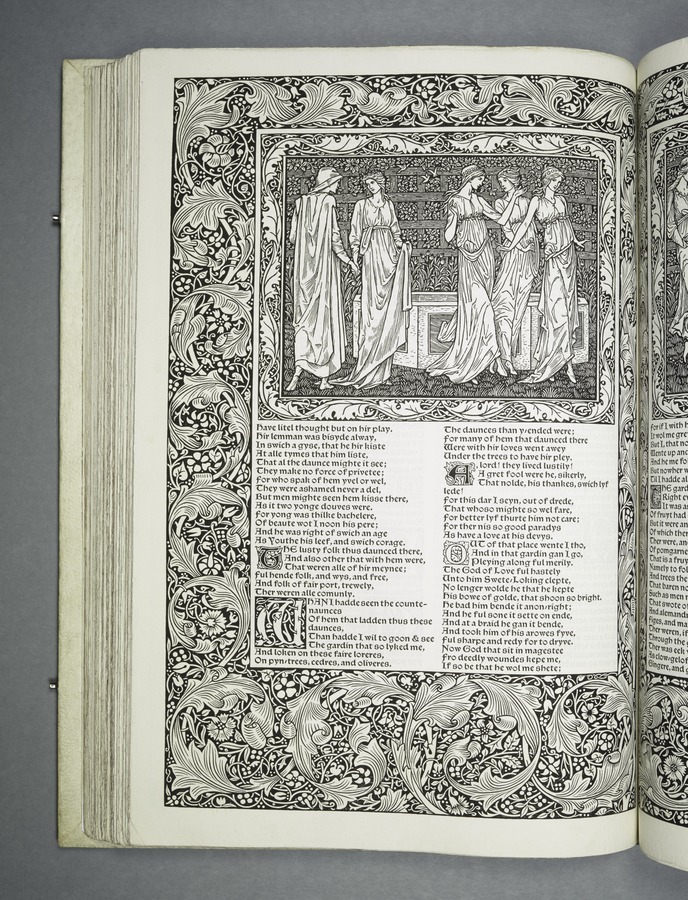 have litel thought but on hir play.
Hir lemman was bisyde alway,
In swich a gyse, that he hir kiste
At alle tymes that him liste,
That al the daunce mighte it see;
They make no force of privetee;
For who spak of hem yvel or wel,
They were ashamed never a del,
But men mighte seen hem kisse there,
As it two yonge douves were.
For yong was thilke bachelere,
Of beaute wot I noon his pere;
And he was right of swich an age
As Youthe his leef, and swich corage.
THE lusty folk thus daunced there,
And also other that with hem were,
That weren alle of hir meynee;
Ful hende folk, and wys, and free,
And folk of fair port, trewely,
Ther weren alle comunly.
WHAN I hadde seen the counte-
naunces
Of hem that ladden thus these
daunces,
Than hadde I wil to goon & see
The gardin that so lyked me,
And loken on these faire loreres,
On pyn-trees, cedres, and oliveres.
The daunces than y-ended were;
For many of hem that daunced there
Were with hir loves went awey
Under the trees to have hir pley.
A, lord! they lived lustily!
A gret fool were he, sikerly,
That nolde, his thankes, swich lyf
lede!
For this dar I seyn, out of drede,
That whoso mighte so wel fare,
For better lyf thurte him not care;
For ther nis so good paradys
As have a love at his devys.
OUT of that place wente I tho,
And in that gardin gan I go,
Pleying along ful merily.
The God of Love ful hastely
Unto him Swete-Loking clepte,
No lenger wolde he that he kepte
His bowe of golde, that shoon so bright.
He bad him bende it anon-right;
And he ful sone it sette on ende,
And at a braid he gan it bende,
And took him of his arowes fyve,
Ful sharpe and redy for to dryve.
Now God that sit in magestee
Fro deedly woundes kepe me,
If so be that he wol me shete;
For if I with h
It wol me gre
But I, that no
Wente up and
And he me fo
But nowher w
Til I hadde al
THE gard
Right e
It was as
Of fruyt had
But it were an
Of which ther
Ther were, an
Of pomgarne
That is a fruy
Namely to fol
And trees the
That baren no
Such as men n
That swote of
And alemand
Figes, and ma
Ther weren, i
Through the
Ther was eek
As clow-gelof
Gingere, and g